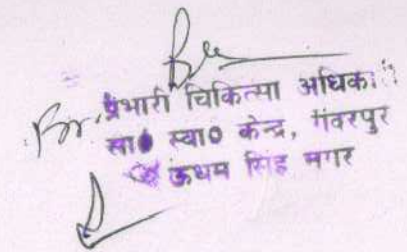 प्रभारी चिकित्सा अधिका
सा० स्वा० केन्द्र, गदरपुर
ऊधम सिंह नगर